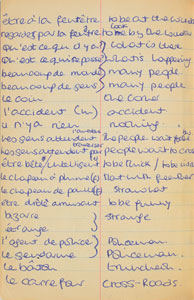 être à la fenêtre to be at the window
regarder par la fenêtre look by the window
qu'est ce qu'il y a? what is there
qu'est ce qui se passe what's happening
beaucoup de monde many people
beaucoup de gens many people
le coin the corner
l'accident (m) accident
il n'y a rien nothing
les gens attendent the people wait
les gens attendent people wait to cross
être bête / intelligent to be thick / to be
le chapeau à plume(s) Hat with feather
le chapeau de paille Straw hat
être drôle amusant to be funny
bizarre strange
étrange
l'agent de police Policeman
le gendarme Policeman
le bâton truncheon
le carrefour CROSS-ROADS